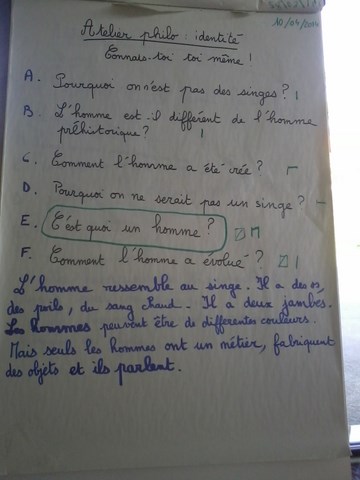 10/04/2014
Atelier philo : identité
Connais-toi toi même !
A. Pourquoi on n'est pas des singes ?
B. L'homme est-il différent de l'homme
préhistorique ?
C. Comment l'homme a été créé ?
D. Pourquoi on ne serait pas un singe ?
E. C'est quoi un homme ?
F. Comment l'homme a évolué ?
L'homme ressemble au singe. Il a des os,
des poils, du sang chaud. Il a deux jambes.
Les hommes peuvent être de différentes couleurs.
Mais seuls les hommes ont un métier, fabriquent
des objets et ils parlent.